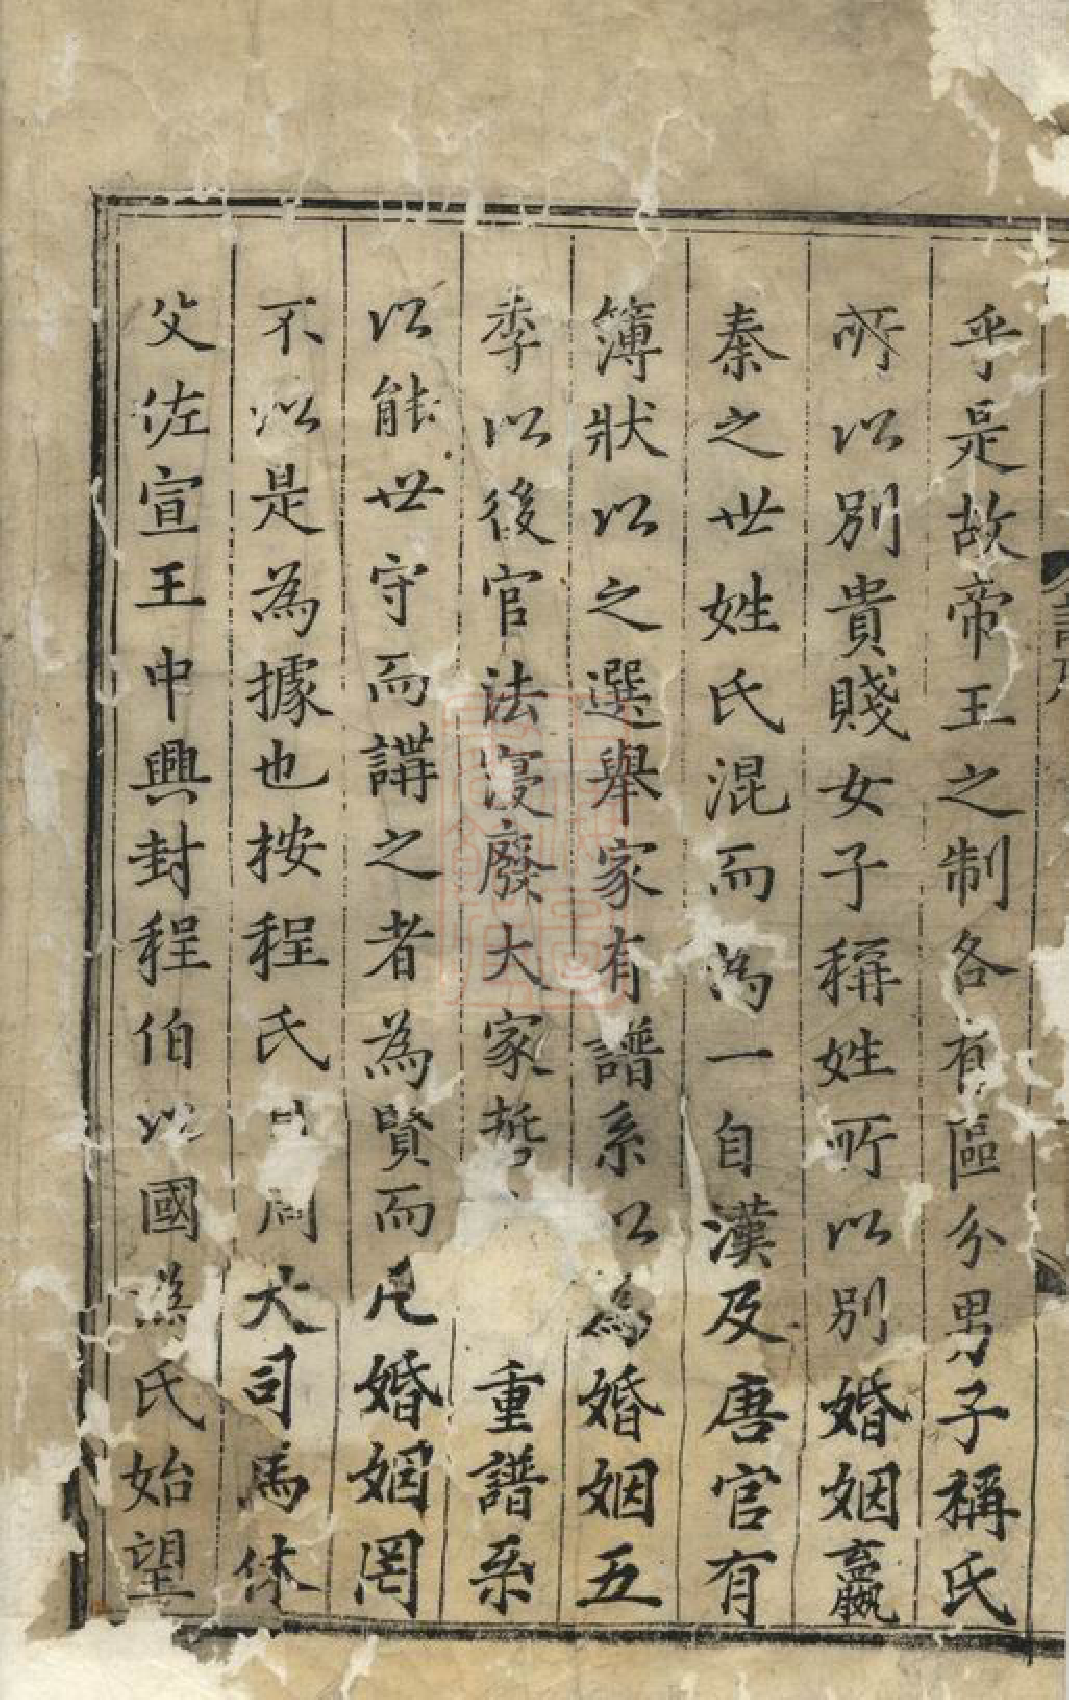 乎是故帝王之制各有區分男子稱氏
所以別貴賤女子稱姓所以別婚姻嬴
秦之世姓氏混而為一自漢及唐官有
簿狀以之選舉家有譜系以為婚姻五
季以後官法寖廢大家哲重譜系
以能世守而講之者為賢而凡婚姻罔
不以是為據也按程氏自周大司馬休
父佐宣王中興封程伯以國為氏始望
譜序